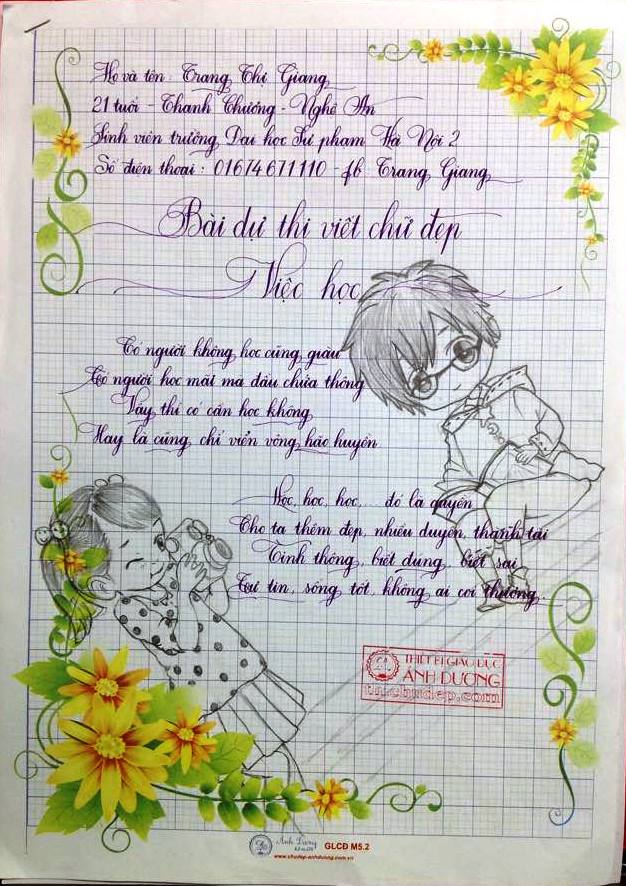 Họ và tên : Trang Thị Giang
21 tuổi - Thanh Chương - Nghệ An
Sinh viên trường Đại học Sư phạm Hà Nội 2
Số điện thoại : 01674671110 - fb Trang Giang
Bài dự thi viết chữ đẹp
Việc học
Có người không học cũng giàu
Có người học mãi mà đâu chửa thông
Vậy thì có cần học không
Hay là cũng chỉ viển vông hão huyền
Học, học, học, ... đó là quyền
Cho ta thêm đẹp, nhiều duyên, thành tài
Tinh thông, biết đúng, biết sai
Tự tin, sống tốt, không ai coi thường..
THIẾT BỊ GIÁO DỤC
ÁNH DƯƠNG
tn.chudep.com
Ánh Dương
GLCĐ M5.2
www.chudep-anhduong.com.vn